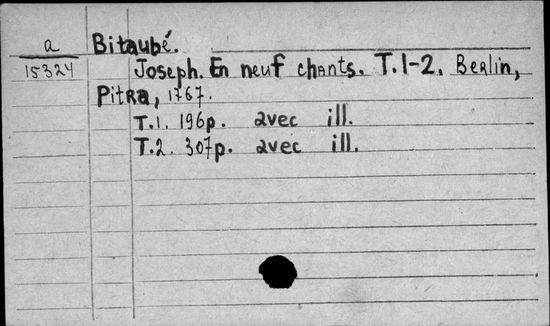 a
15324
Bitaubé.
Joseph. En neuf chants. T.1-2. Berlin,
Pitra, 1767.
T.1. 196p. avec ill.
T.2. 307p. avec ill.